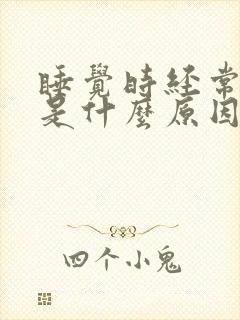 睡覺時經常
是什麼原因
四个小鬼